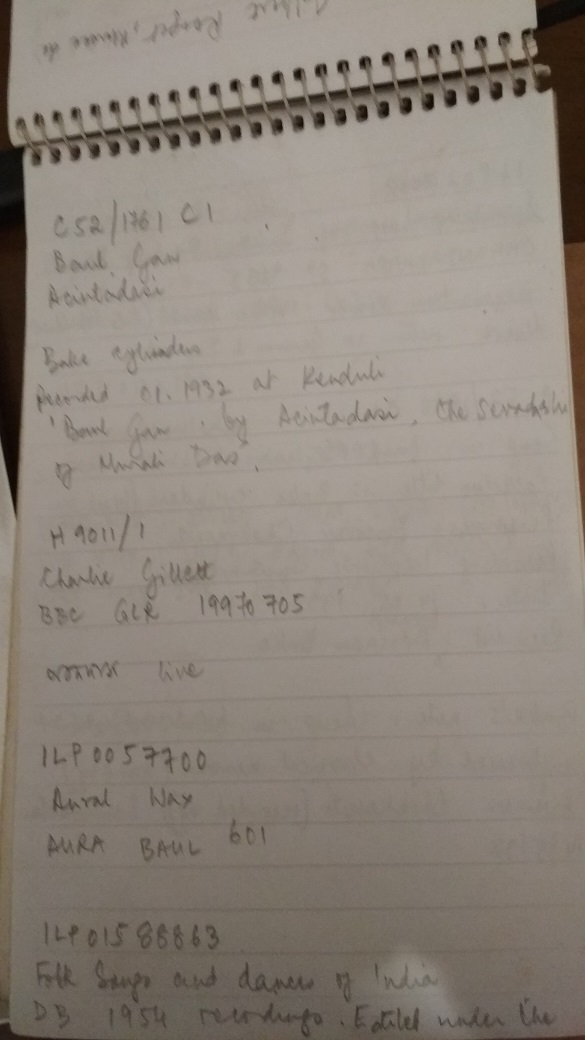 C52/1761 C1
Baul Gan
Acintadasi
Bake cylinders
Recorded 01.1932 at Kenduli
'Baul Gan' by Acintadasi, the Sevadashi
of Murali Das.
H9011/1
Charlie Gillett
BBC GLR 19970705
live
1LP0057700
Aural Wax
AURA BAUL 601
1LP01588863
Folk Songs and dances of India
DB 1954 recordings. Edited under the